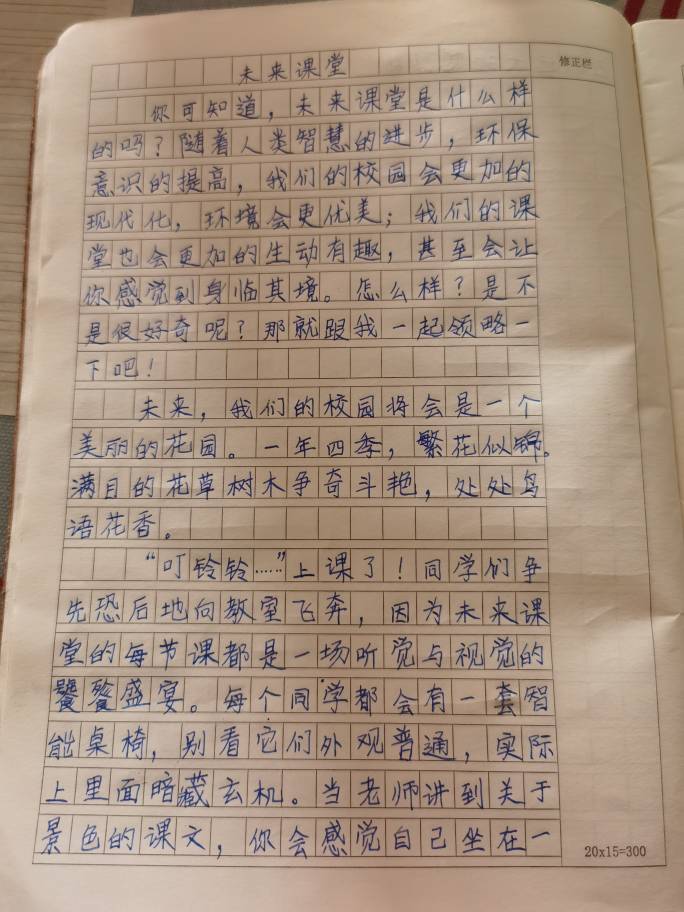 未来课堂
修正栏
你可知道，未来课堂是什么样
的吗？随着人类智慧的进步，环保
意识的提高，我们的校园会更加的
现代化，环境会更优美；我们的课
堂也会更加的生动有趣，甚至会让
你感觉到身临其境。怎么样？是不
是很好奇呢？那就跟我一起领略一
下吧！
未来，我们的校园将会是一个
美丽的花园。一年四季，繁花似锦。
满目的花草树木争奇斗艳，处处鸟
语花香。
“叮铃铃……”上课了！同学们争
先恐后地向教室飞奔，因为未来课
堂的每节课都是一场听觉与视觉的
饕餮盛宴。每个同学都会有一套智
能桌椅，别看它们外观普通，实际
上里面暗藏玄机。当老师讲到关于
景色的课文，你会感觉自己坐在一
20x15=300